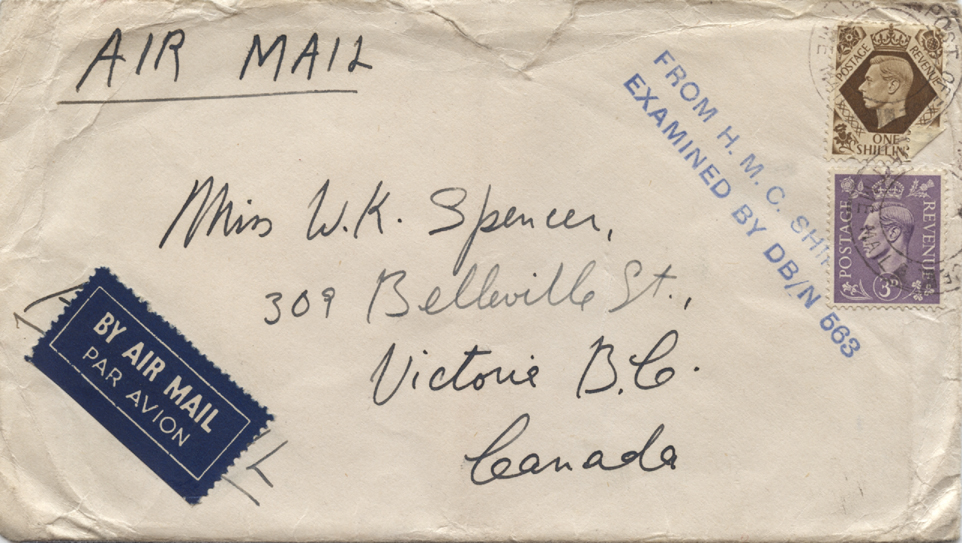 AIR MAIL
FROM H. M. C. SHIP
EXAMINED BY DB/N 563
POSTAGE REVENUE
ONE SHILLING
POSTAGE REVENUE
3D
Miss W.K. Spencer,
309 Belleville St.,
Victoria B.C.
Canada
BY AIR MAIL
PAR AVION